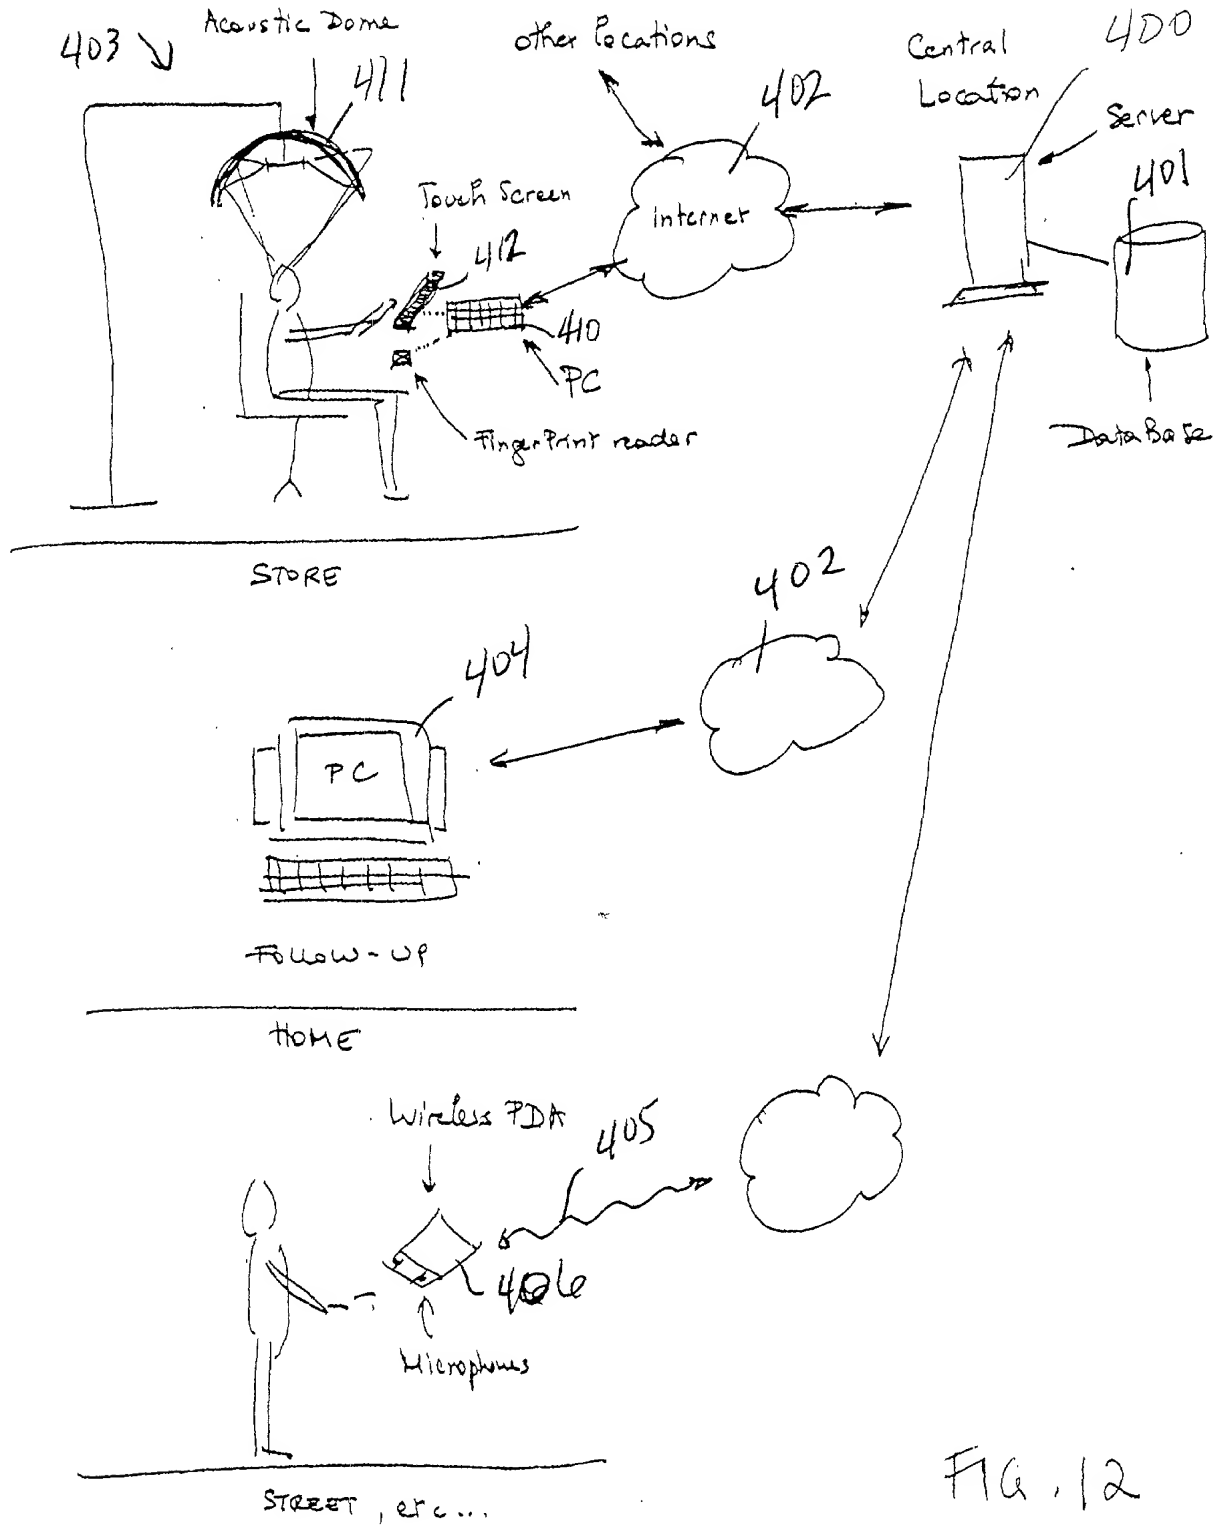 403
Acoustic Dome
411
other locations
402
Central
Location
400
Server
401
Touch Screen
412
internet
410
PC
FingerPrint reader
DataBase
STORE
402
404
PC
Follow-up
HOME
Wireless PDA
405
406
Microphones
STREET, etc...
FIG. 12